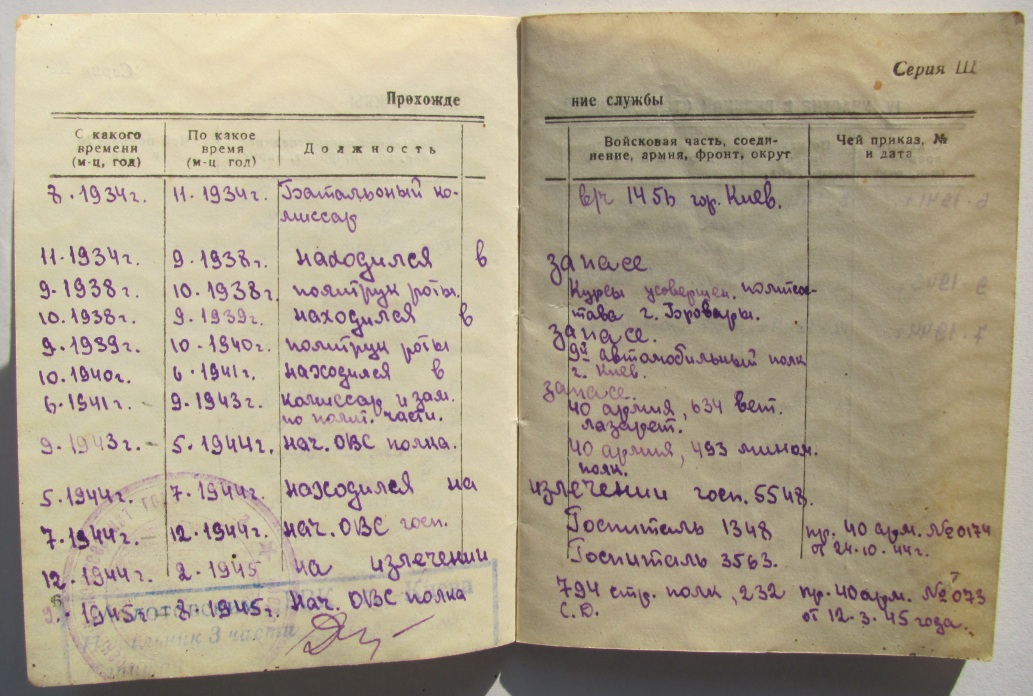 Серия Ш
Прохожде ние службы
С какого времени (м-ц, год)
По какое время (м-ц, гол)
Должность
Войсковая часть, соеди-
нение, армия, фронт, округ
Чей приказ, №
и дата
8·1934г. 11·1934г. Батальоный ко- в/ч 1456 гор. Киев.
миссар
11·1934г. 9·1938г. находился в запасе
9·1938г. 10·1938г. политрук роты. Курсы усовершен. политсос-
тава г. Бровары.
10·1938г. 9·1939г. находился в запасе.
9·1939г. 10·1940г. политрук роты 9й автомобильный полк
г. Киев.
10·1940г. 6·1941г. находился в запасе.
6·1941г. 9·1943г. комиссар и зам. 40 армия, 634 вет.
по полит. части. лазарет.
9·1943г. 5·1944г. нач. ОВС полка. 40 армия, 493 мином.
полк.
5·1944г. 7·1944г. находился на излечении госп. 5548.
7·1944г. 12·1944г. нач. ОВС госп. Госпиталь 1348 пр. 40 арм. №0174
от 24·10·44г.
12·1944г. 2·1945 на излечении Госпиталь 3563.
2·1945г. 8·1945г. нач. ОВС полка 794 стр. полк, 232 пр. 40 арм. №073
7
С.Д. от 12·3·45 года.
РВК Киева
Начальник 3 части